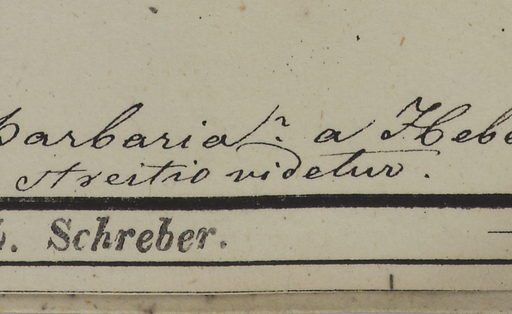 barbaria (?) a Heb
Arestio videtur.
b. Schreber.